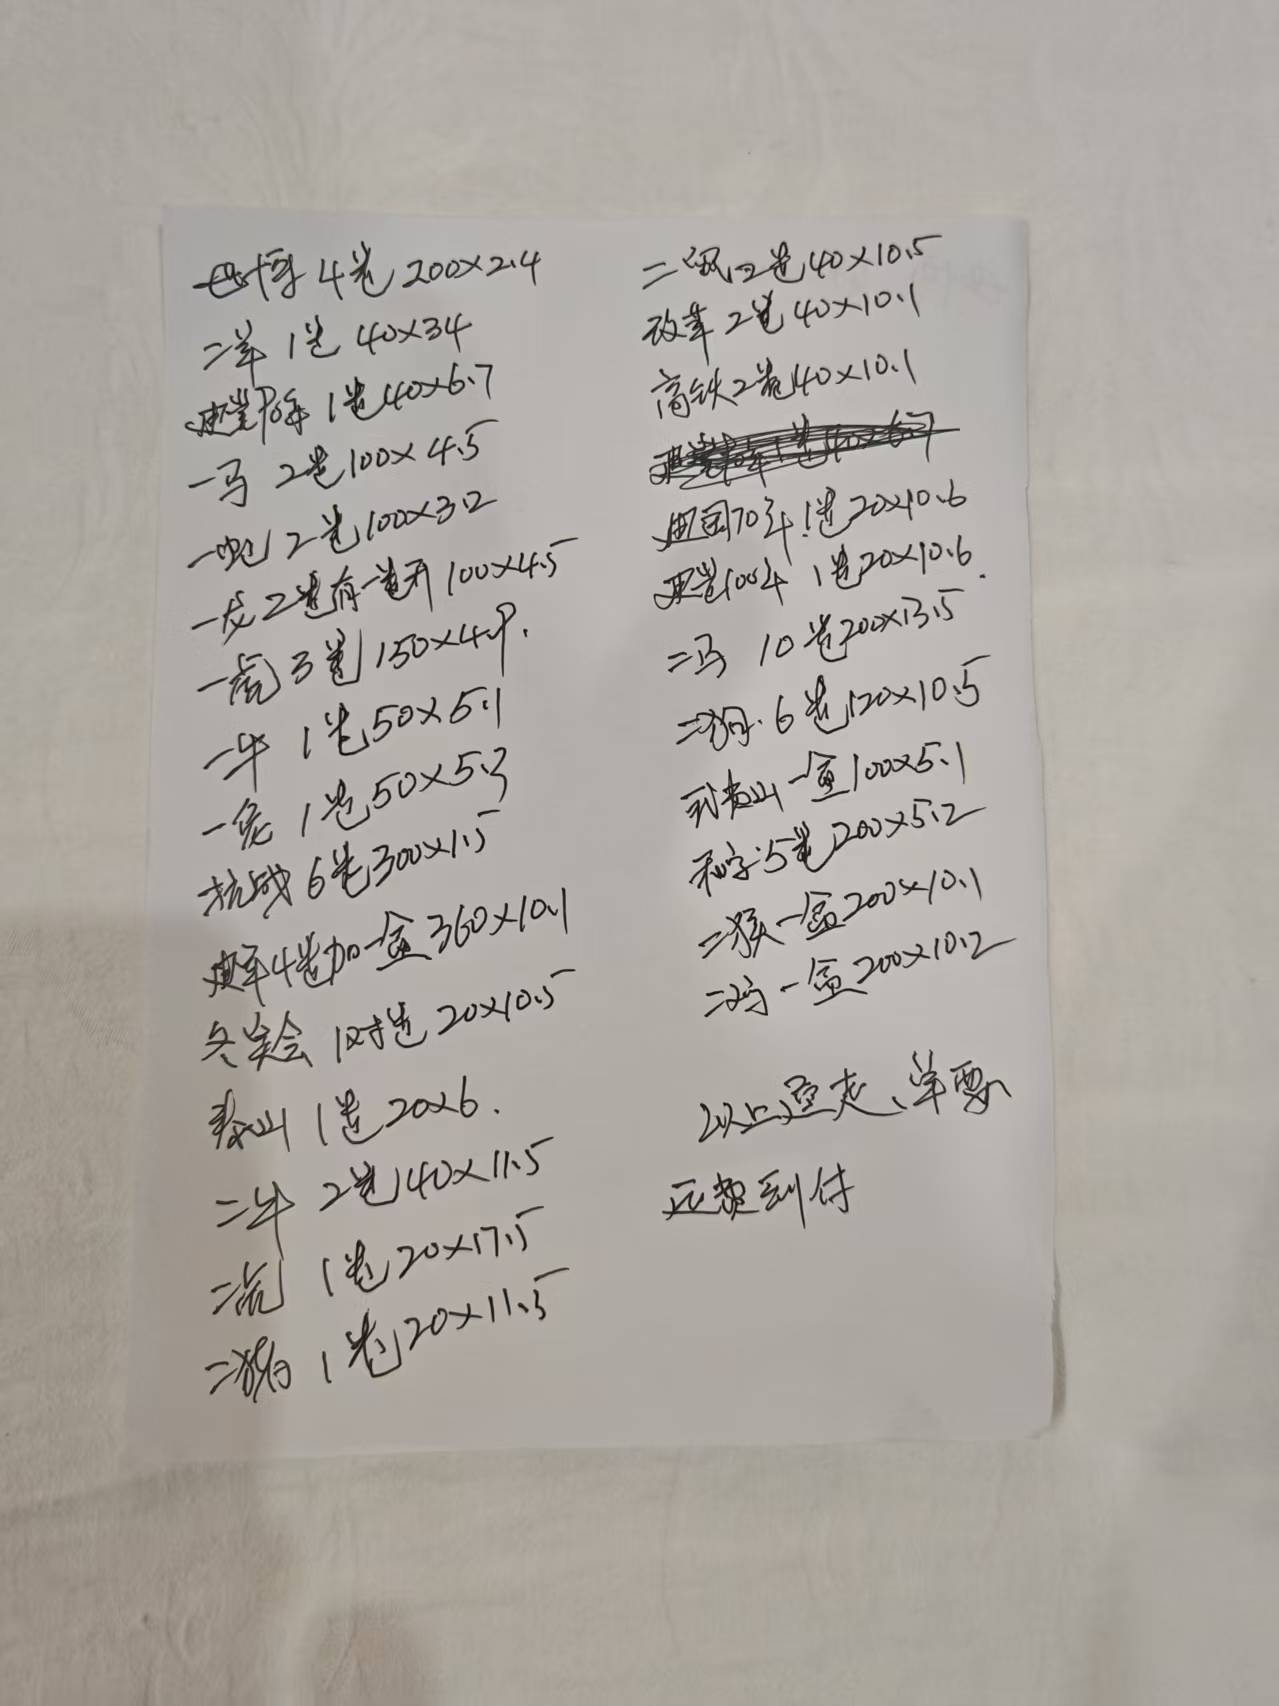 世博 4卷 200×2.4
二羊 1卷 40×34
建党90年 1卷 40×6.7
一马 2卷 100×4.5
一蛇 2卷 100×3.2
一龙 2卷有一卷开 100×4.5
一虎 3卷 150×4.9.
一牛 1卷 50×5.1
一兔 1卷 50×5.3
抗战 6卷 300×1.5
建军 4卷加一盒 360×10.1
冬奥会 1对卷 20×10.5
泰山 1卷 20×6.
二牛 2卷 40×11.5
二虎 1卷 20×17.5
二猪 1卷 20×11.5
二 2卷 40×10.5
改革 2卷 40×10.1
高铁 2卷 40×10.1
建国70年 1卷 20×10.6
建党100年 1卷 20×10.6.
二马 10卷 200×13.5
二狗. 6卷 120×10.5
武夷山 一盒 100×5.1
和字: 5卷 200×5.2
二猴 一盒 200×10.1
二鸡 一盒 200×10.2
以上通走、单要
运费到付